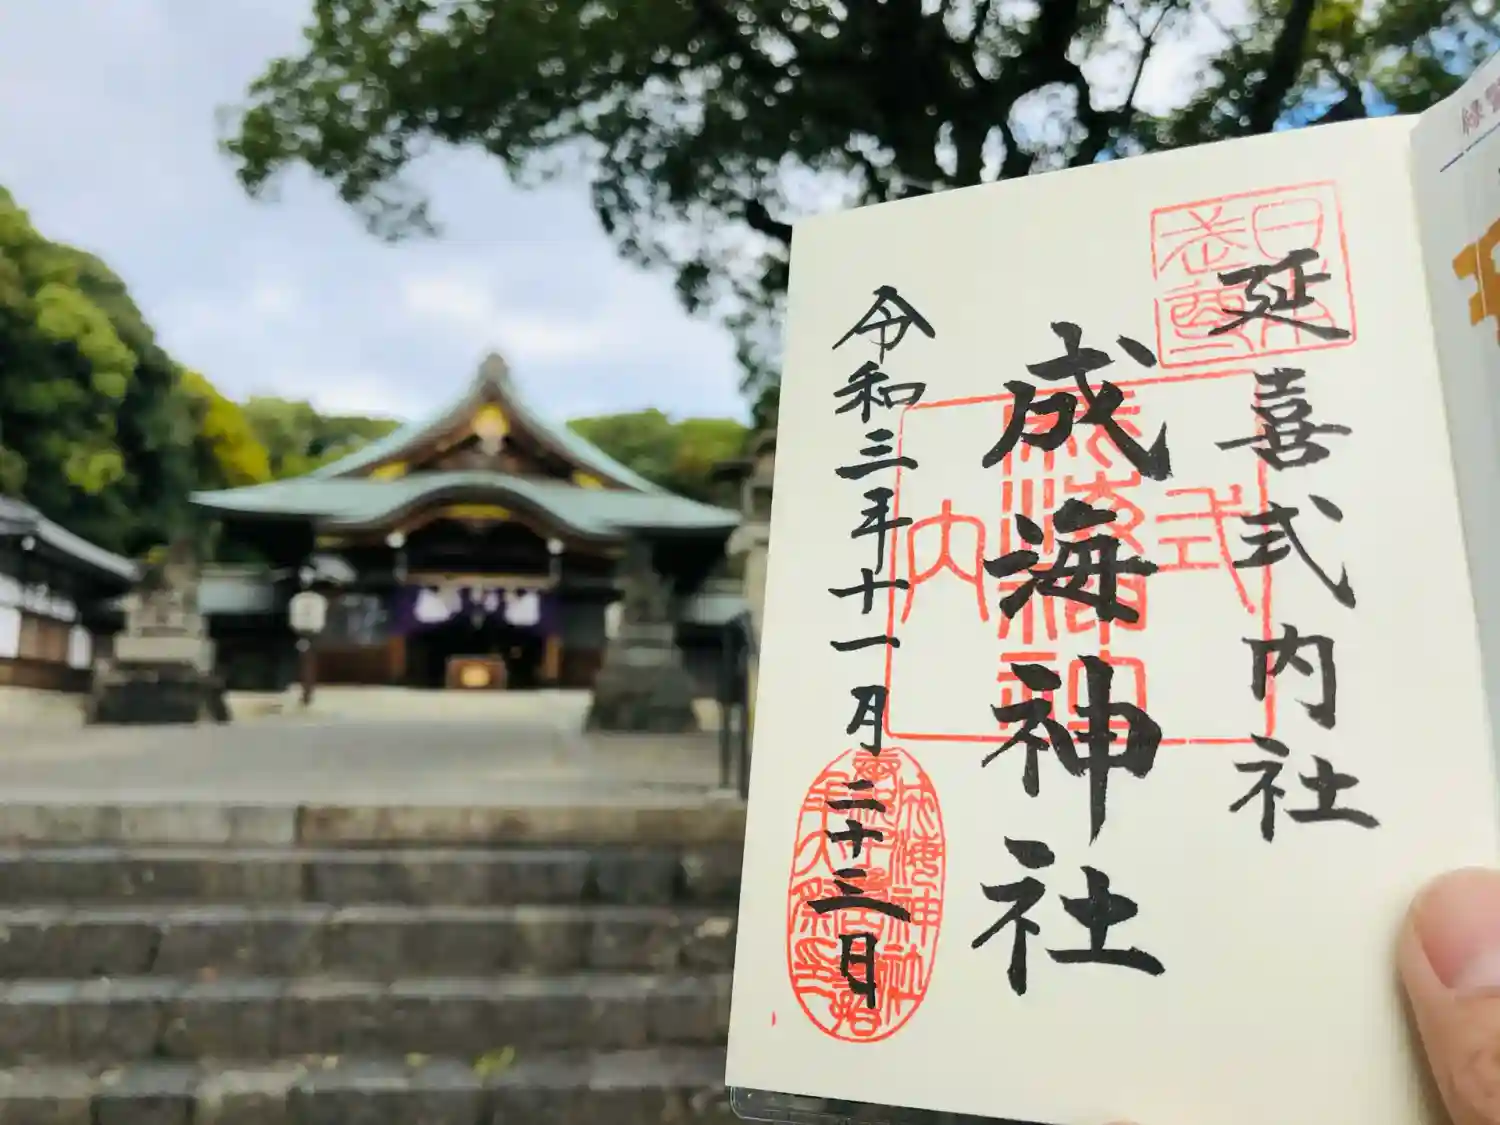 延喜式内社
成海神社
令和三年十一月二十三日
式
内